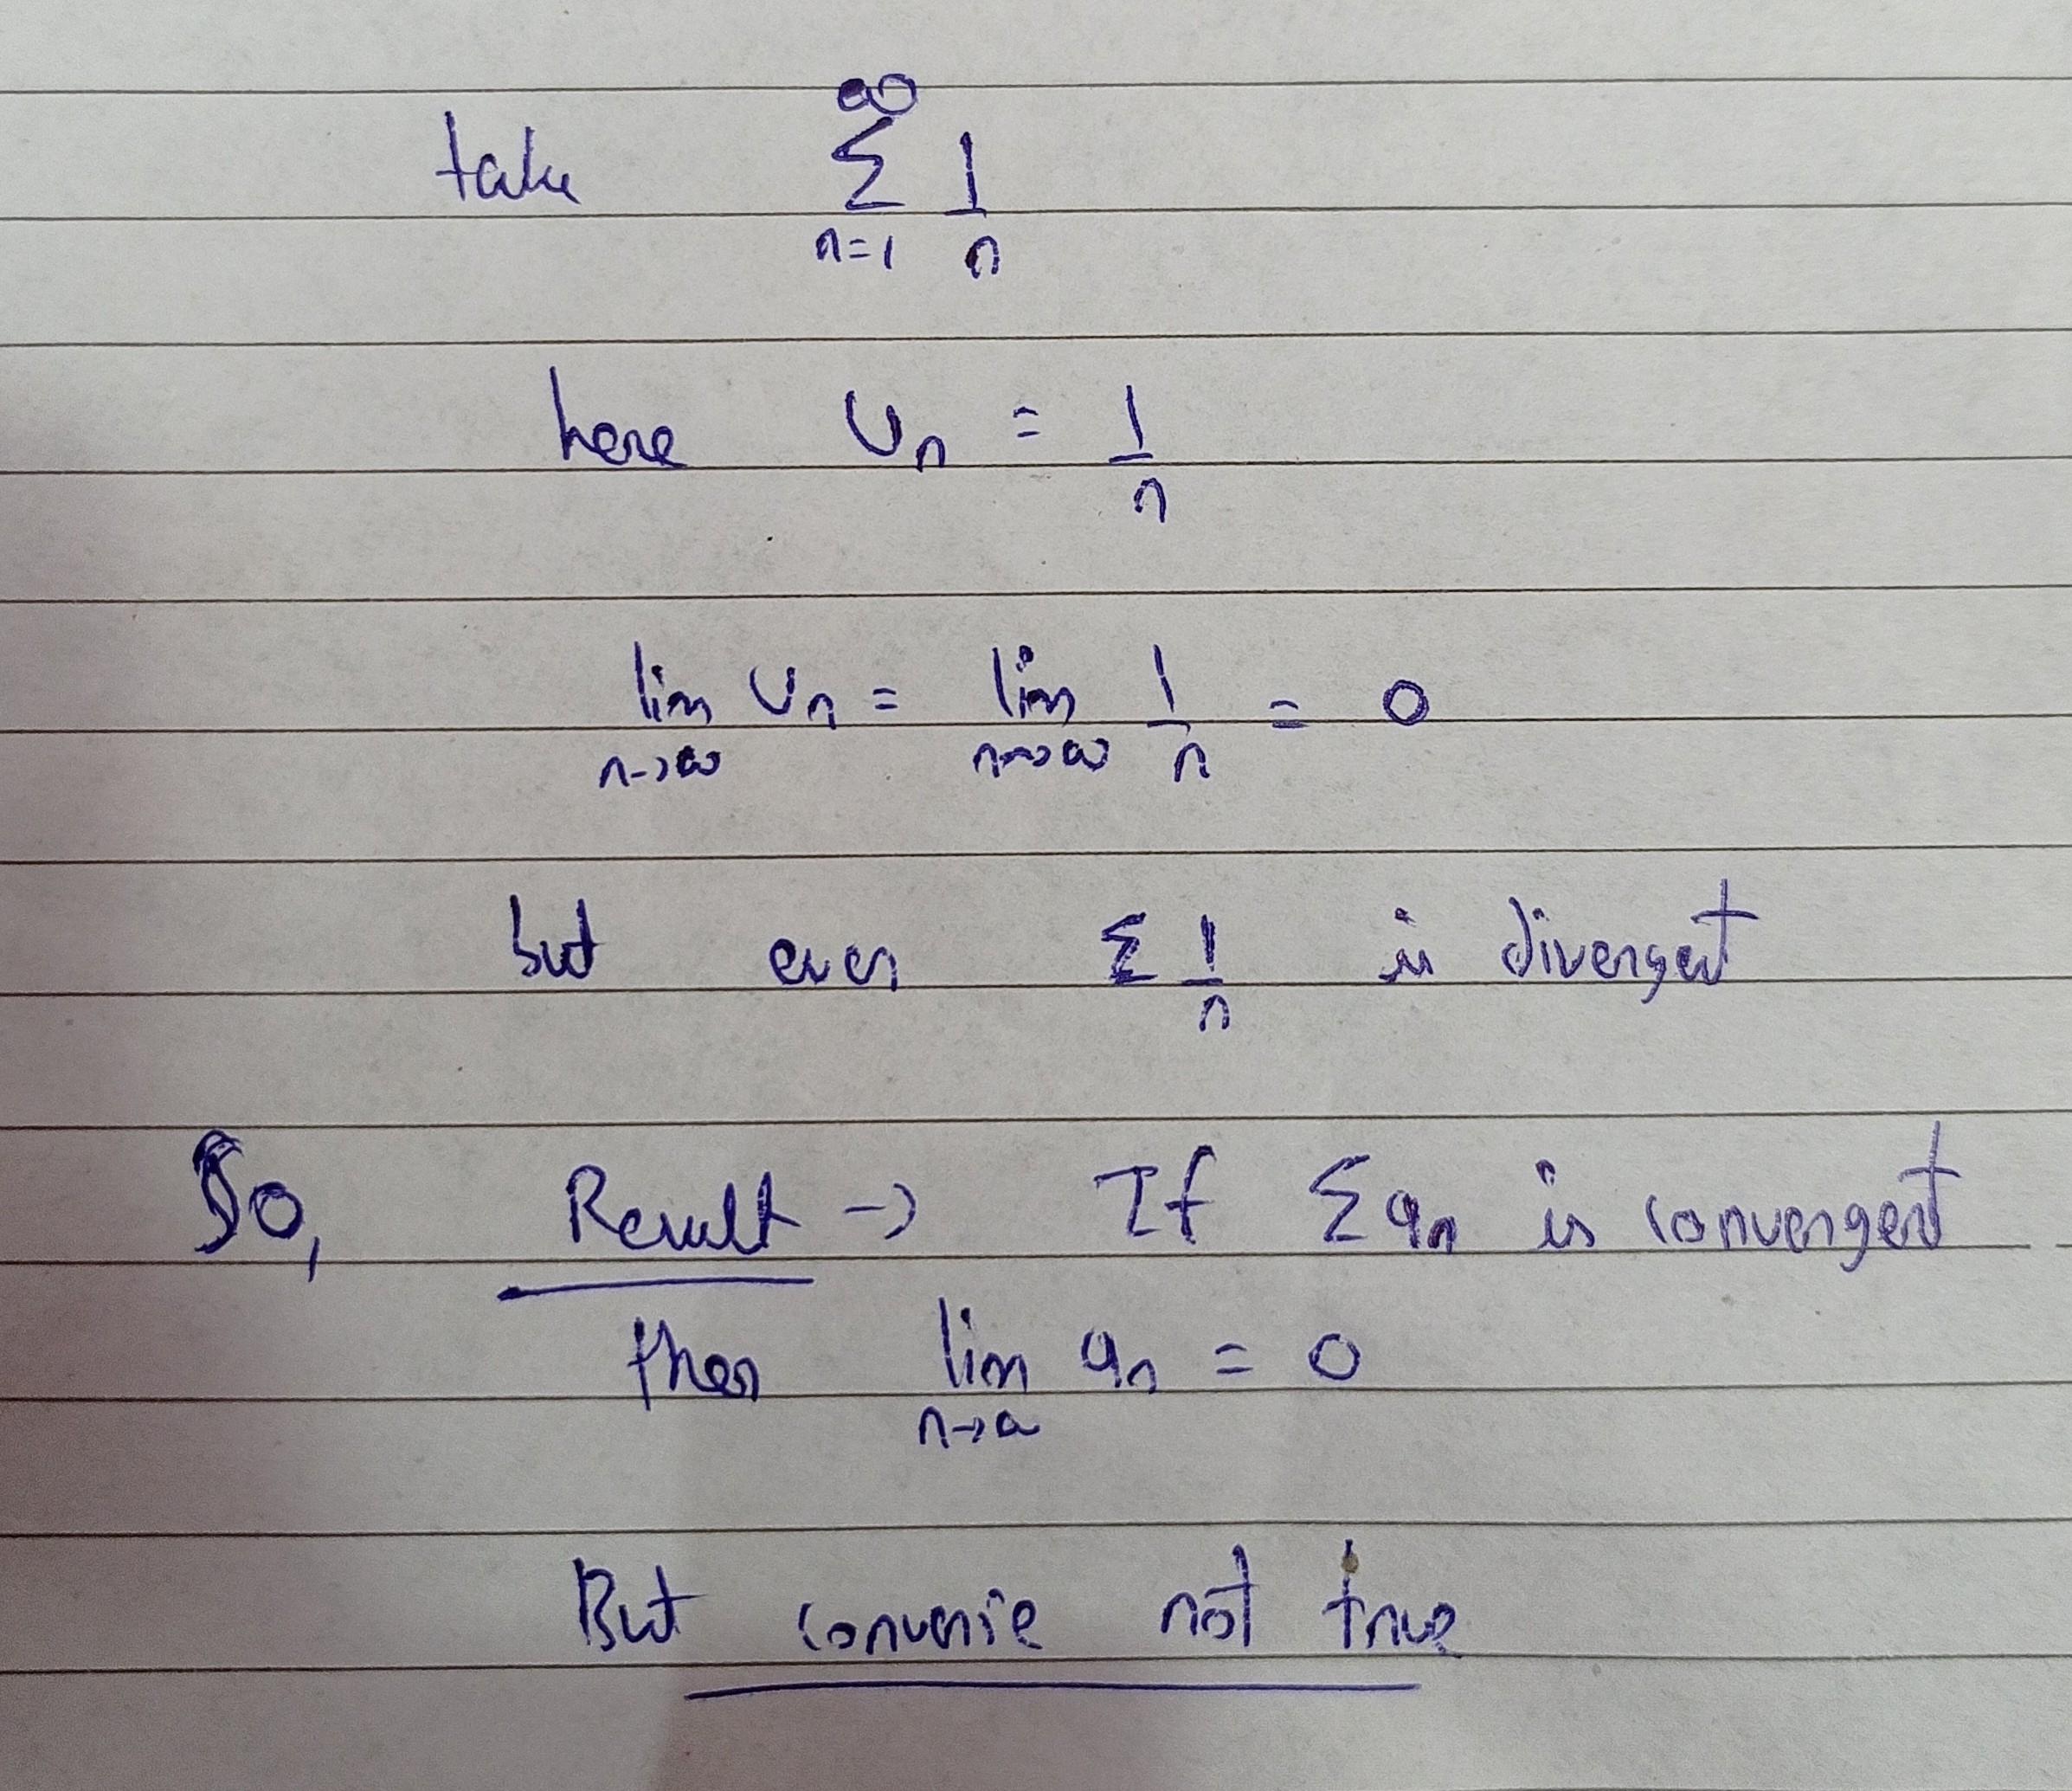 take ∑_{n=1}^{∞} 1/n
here Un = 1/n
lim_{n→∞} Un = lim_{n→∞} 1/n = 0
but even Σ 1/n is divergent
So, Result → If Σ an is convergent
then lim_{n→∞} an = 0
But converse not true